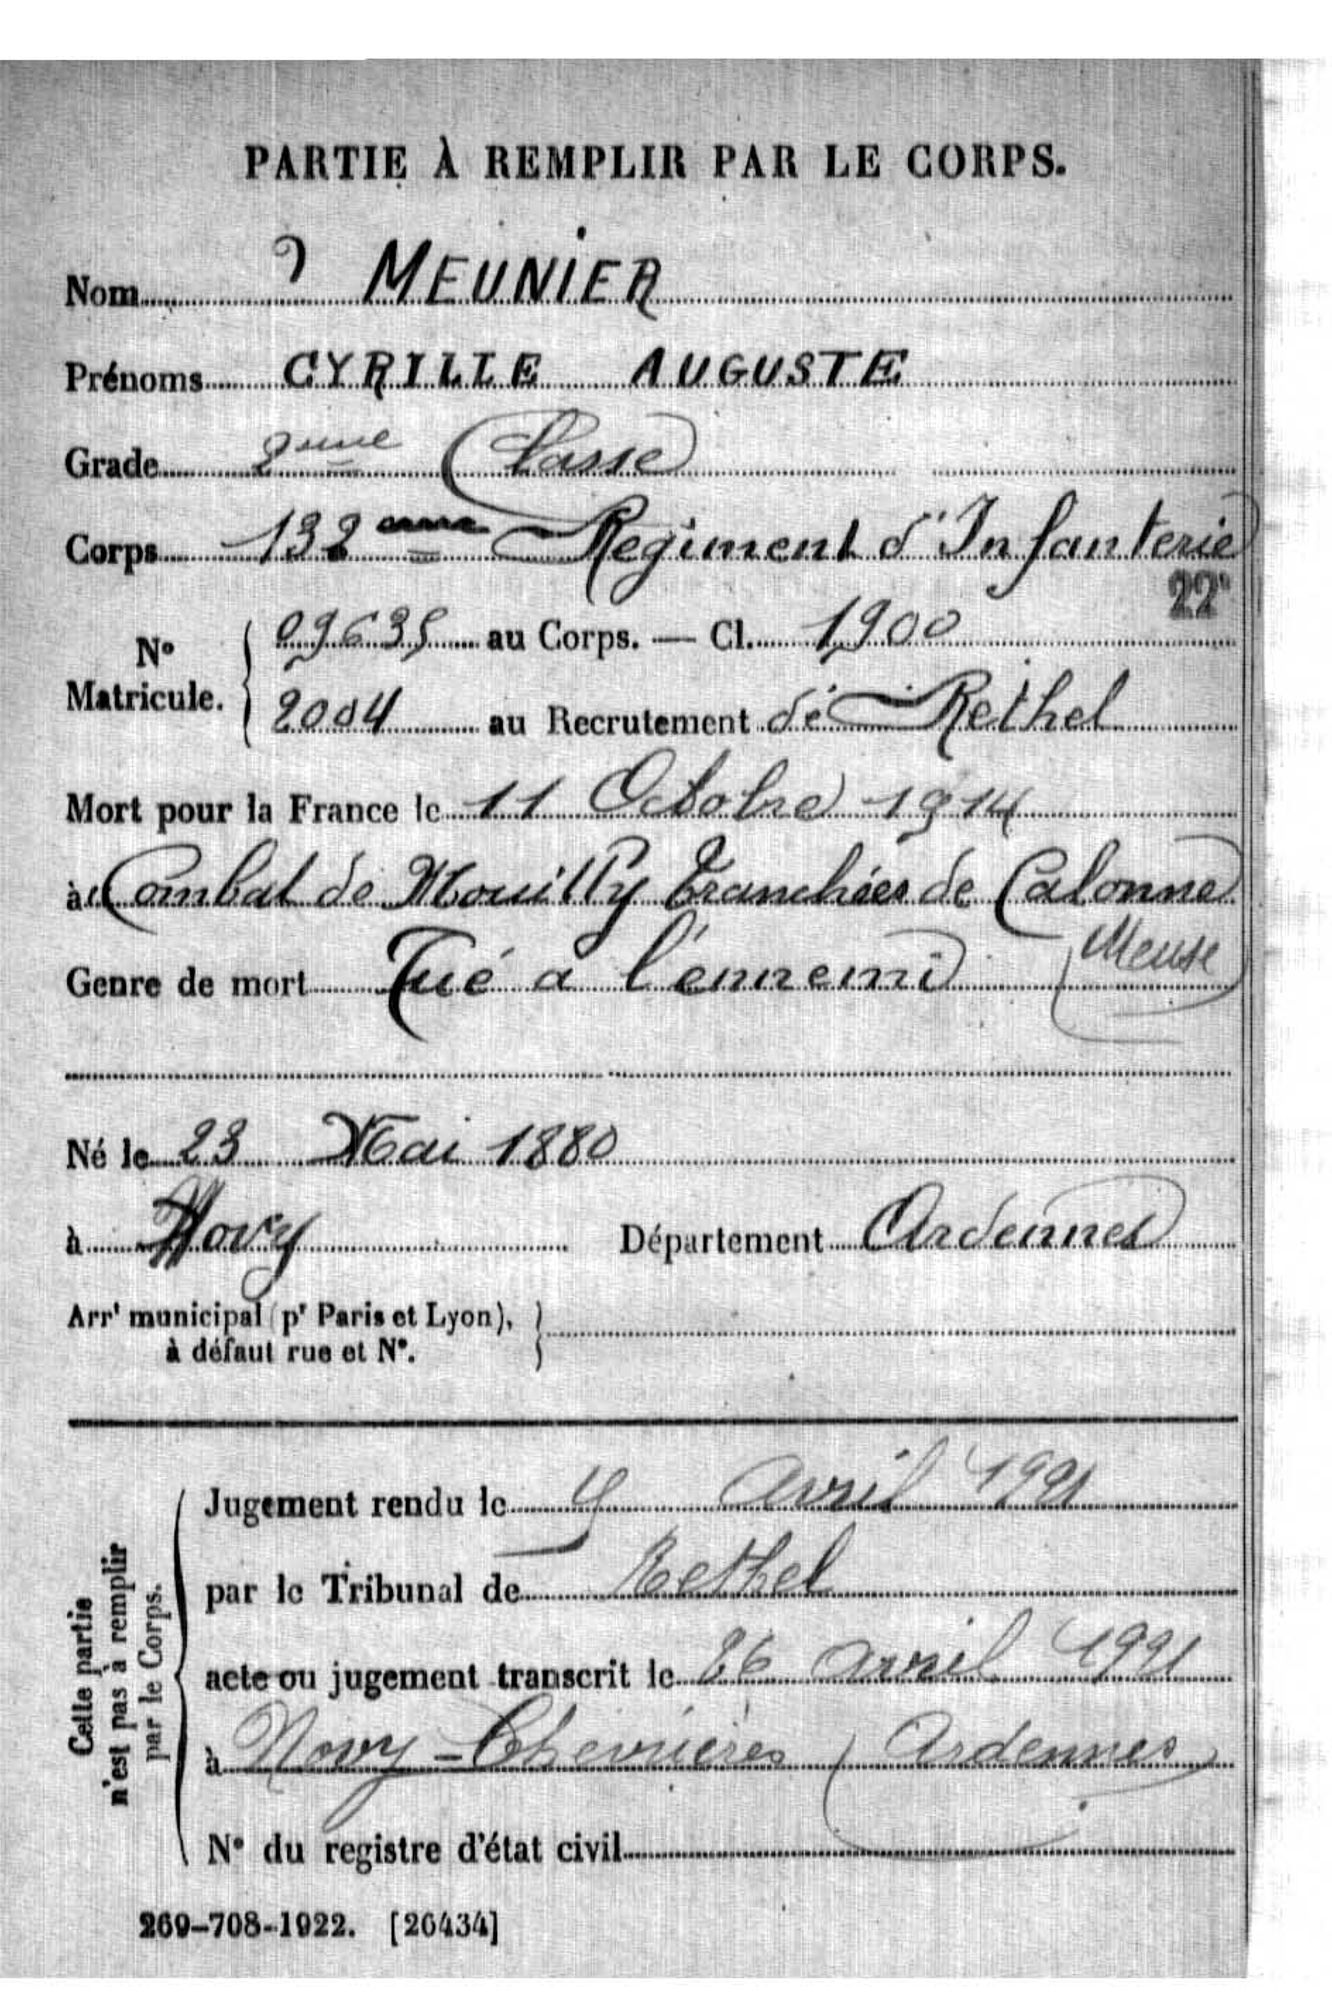 PARTIE À REMPLIR PAR LE CORPS.
Nom MEUNIER
Prénoms CYRILLE AUGUSTE
Grade 2eme Classe
Corps 132eme Regiment d'Infanterie
22
N° Matricule. 09635 au Corps. — Cl. 1900
2004 au Recrutement de Rethel
Mort pour la France le 11 Octobre 1914
àu Combat de Mouilly tranchées de Calonne
Meuse
Genre de mort Tué a l'ennemi
Né le 23 Mai 1880
à Novy Département Ardennes
Arrt municipal (pr Paris et Lyon),
à défaut rue et N°.
Cette partie
n'est pas à remplir
par le Corps.
Jugement rendu le avril 1921
par le Tribunal de Rethel
acte ou jugement transcrit le 26 avril 1921
à Novy-Chevrières (Ardennes
N° du registre d'état civil
269-708-1922. [26434]